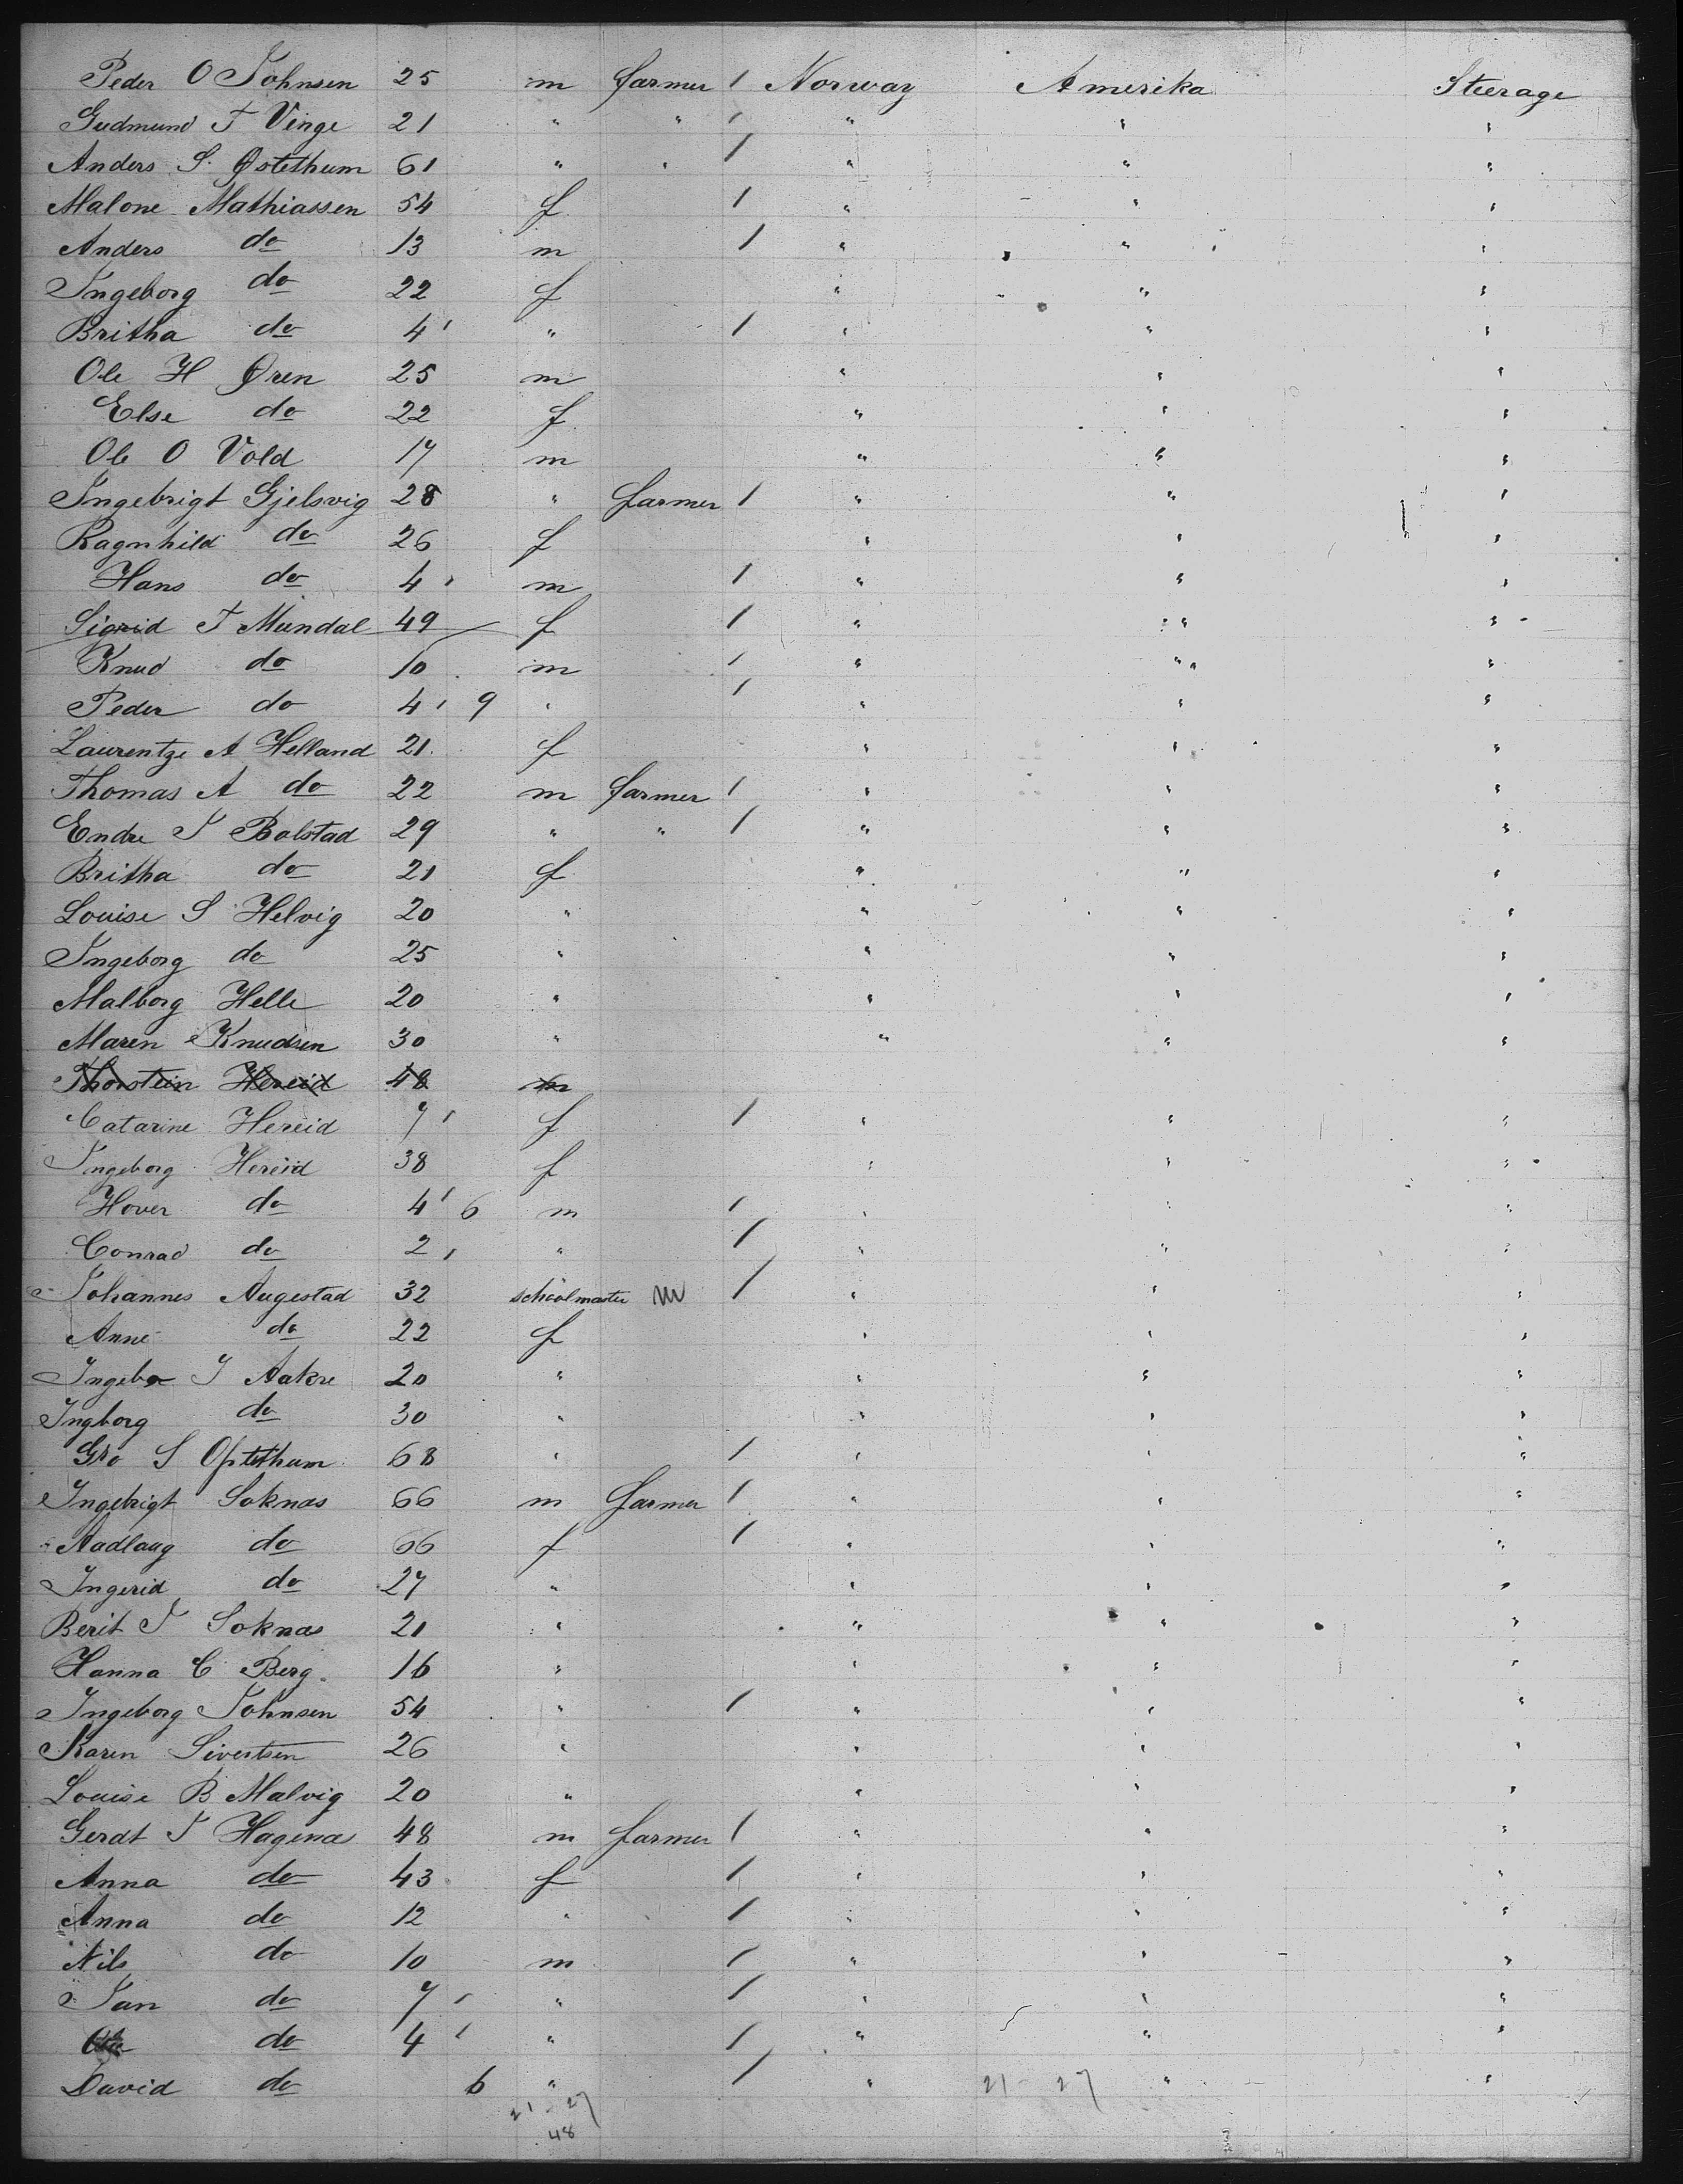 Peder O Johnsen 25 m farmer / Norway Amerika Steerage
Gudmund T Vinge 21 " " / " " "
Anders S. Østethum 61 " " / " " "
Malone Mathiassen 54 f / " " "
Anders do 13 m / " " "
Ingeborg do 22 f " " "
Britha do 4 ' " / " " "
Ole H Øren 25 m " " "
Else do 22 f " " "
Ole O Vold 17 m " " "
Ingebrigt Gjelsvig 28 " farmer / " " "
Ragnhild do 26 f " " "
Hans do 4 ' m / " " "
Sigrid T Mundal 49 f / " " "
Knud do 10 m / " " "
Peder do 4 ' 9 " / " " "
Laurentze A Helland 21 f " " "
Thomas A do 22 m farmer / " " "
Endre J Bolstad 29 " " / " " "
Britha do 21 f " " "
Louise S Helvig 20 " " " "
Ingeborg do 25 " " " "
Malborg Helle 20 " " " "
Maren Knudsen 30 " " " "
Thorstein Hereid 48 m
Catarine Hereid 7 ' f / " " "
Ingeborg Hereid 38 f " " "
Hover do 4 ' 6 m / " " "
Conrad do 2 ' " / " " "
Johannes Augestad 32 schoolmaster m / " " "
Anne do 22 f " " "
Ingebor J Aakre 20 " " " "
Ingborg do 30 " " " "
Gro S Optethum 68 " / " " "
Ingebrigt Soknas 66 m farmer / " " "
Aadlaug do 66 f / " " "
Ingerid do 27 " " " "
Berit J Soknas 21 " " " "
Hanna C Berg 16 " " " "
Ingeborg Johnsen 54 " / " " "
Karen Sivertsen 26 " " " "
Louise B Malvig 20 " " " "
Gerdt J Hagenas 48 m farmer / " " "
Anna do 43 f / " " "
Anna do 12 " / " " "
Nils do 10 m / " " "
Jan do 7 ' " / " " "
do 4 ' " / " " "
David do 6 " / " 21 - 27 " "
21 - 27
48